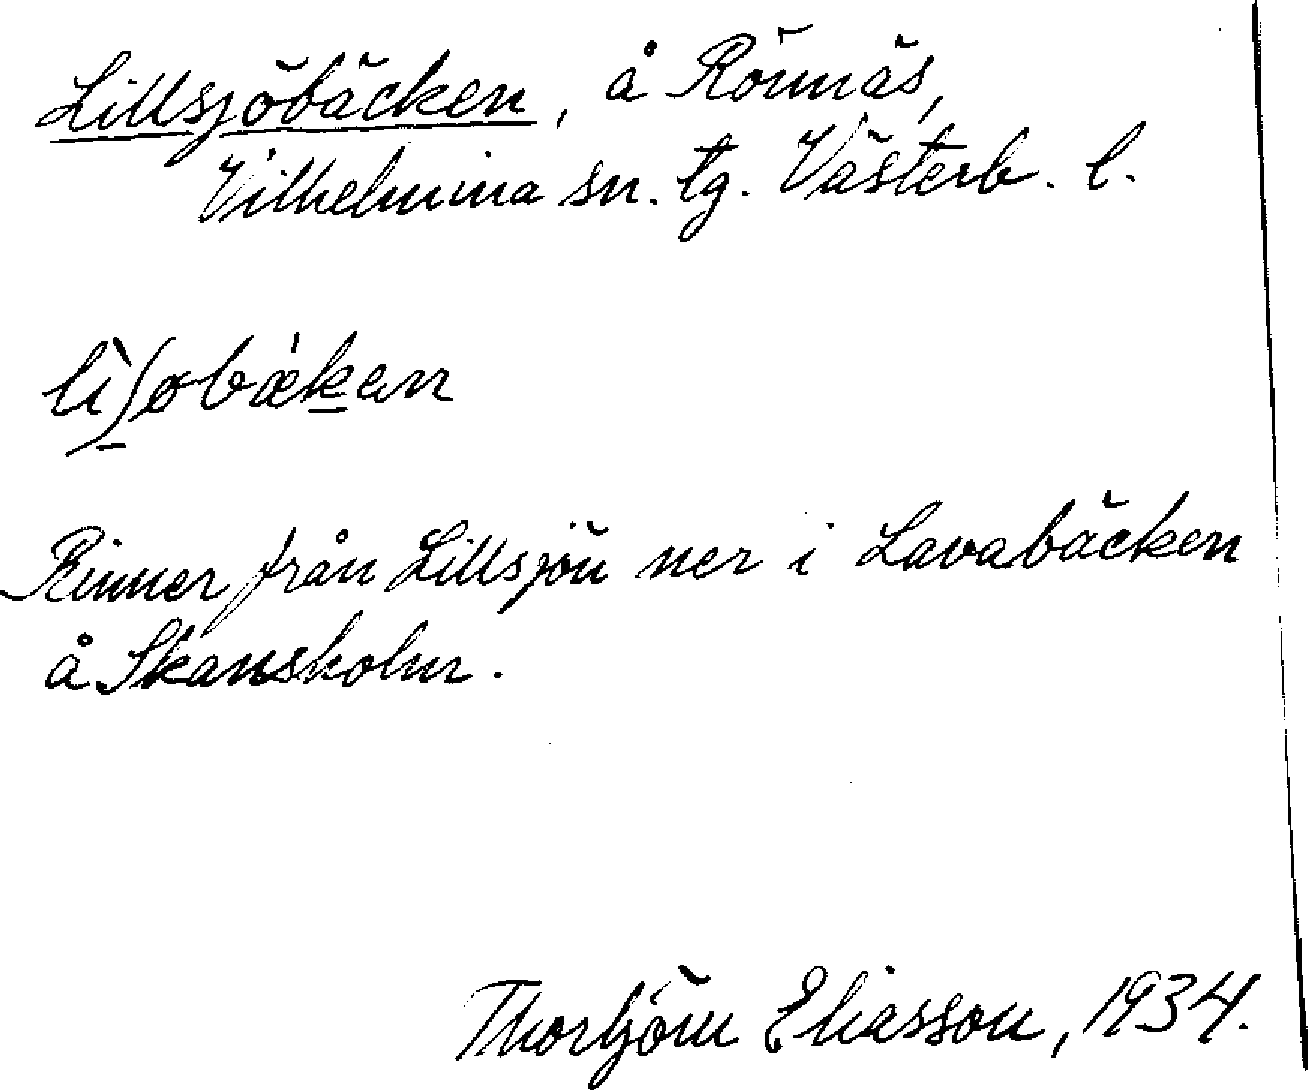 Lillsjöbäcken, å Rönnäs,
Vilhelmina sn. tg. Västerb. l.
lìʃøbækan
Rinner från Lillsjön ner i Lavabäcken
å Skansholm.
Thorbjörn Eliasson, 1934.